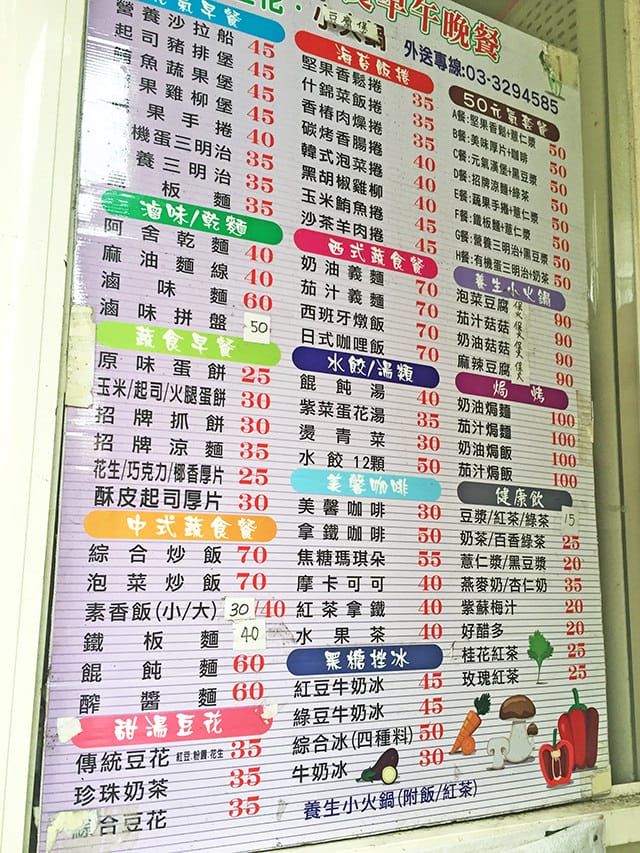 元氣早餐
營養沙拉船 45
起司豬排堡 45
鮪魚蔬果堡 45
果雞柳堡 45
果手捲 40
機蛋三明治 35
養三明治 35
板麵 35
滷味/乾麵
阿舍乾麵 40
麻油麵線 40
滷味麵 60
滷味拼盤 50
蔬食早餐
原味蛋餅 25
玉米/起司/火腿蛋餅 30
招牌抓餅 30
招牌涼麵 35
花生/巧克力/椰香厚片 25
酥皮起司厚片 30
中式蔬食餐
綜合炒飯 70
泡菜炒飯 70
素香飯(小/大) 30/40
鐵板麵 40
餛飩麵 60
醡醬麵 60
甜湯豆花
傳統豆花 紅豆:粉圓:花生 35
珍珠奶茶 35
綜合豆花 35
豆腐煲
早午晚餐
外送專線:03-3294585
海苔飯捲
堅果香鬆捲 35
什錦菜飯捲 35
香椿肉燥捲 35
碳烤香腸捲 35
韓式泡菜捲 40
黑胡椒雞柳 40
玉米鮪魚捲 45
沙茶羊肉捲 45
西式蔬食餐
奶油義麵 70
茄汁義麵 70
西班牙燉飯 70
日式咖哩飯 70
水餃/湯類
餛飩湯 40
紫菜蛋花湯 35
燙青菜 30
水餃12顆 50
美馨咖啡
美馨咖啡 30
拿鐵咖啡 50
焦糖瑪琪朵 55
摩卡可可 40
紅茶拿鐵 40
水果茶 40
黑糖挫冰
紅豆牛奶冰 45
綠豆牛奶冰 45
綜合冰(四種料) 50
牛奶冰 30
養生小火鍋(附飯/紅茶)
50元氣套餐
A餐:堅果香鬆+薏仁漿 50
B餐:美味厚片+咖啡 50
C餐:元氣漢堡+黑豆漿 50
D餐:招牌涼麵+綠茶 50
E餐:蔬果手捲+薏仁漿 50
F餐:鐵板麵+薏仁漿 50
G餐:營養三明治+黑豆漿 50
H餐:有機蛋三明治+奶茶 50
養生小火鍋
泡菜豆腐煲 90
茄汁菇菇煲 90
奶油菇菇煲 90
麻辣豆腐煲 90
焗烤
奶油焗麵 100
茄汁焗麵 100
奶油焗飯 100
茄汁焗飯 100
健康飲
豆漿/紅茶/綠茶 15
奶茶/百香綠茶 25
薏仁漿/黑豆漿 20
燕麥奶/杏仁奶 35
紫蘇梅汁 20
好醋多 20
桂花紅茶 25
玫瑰紅茶 25